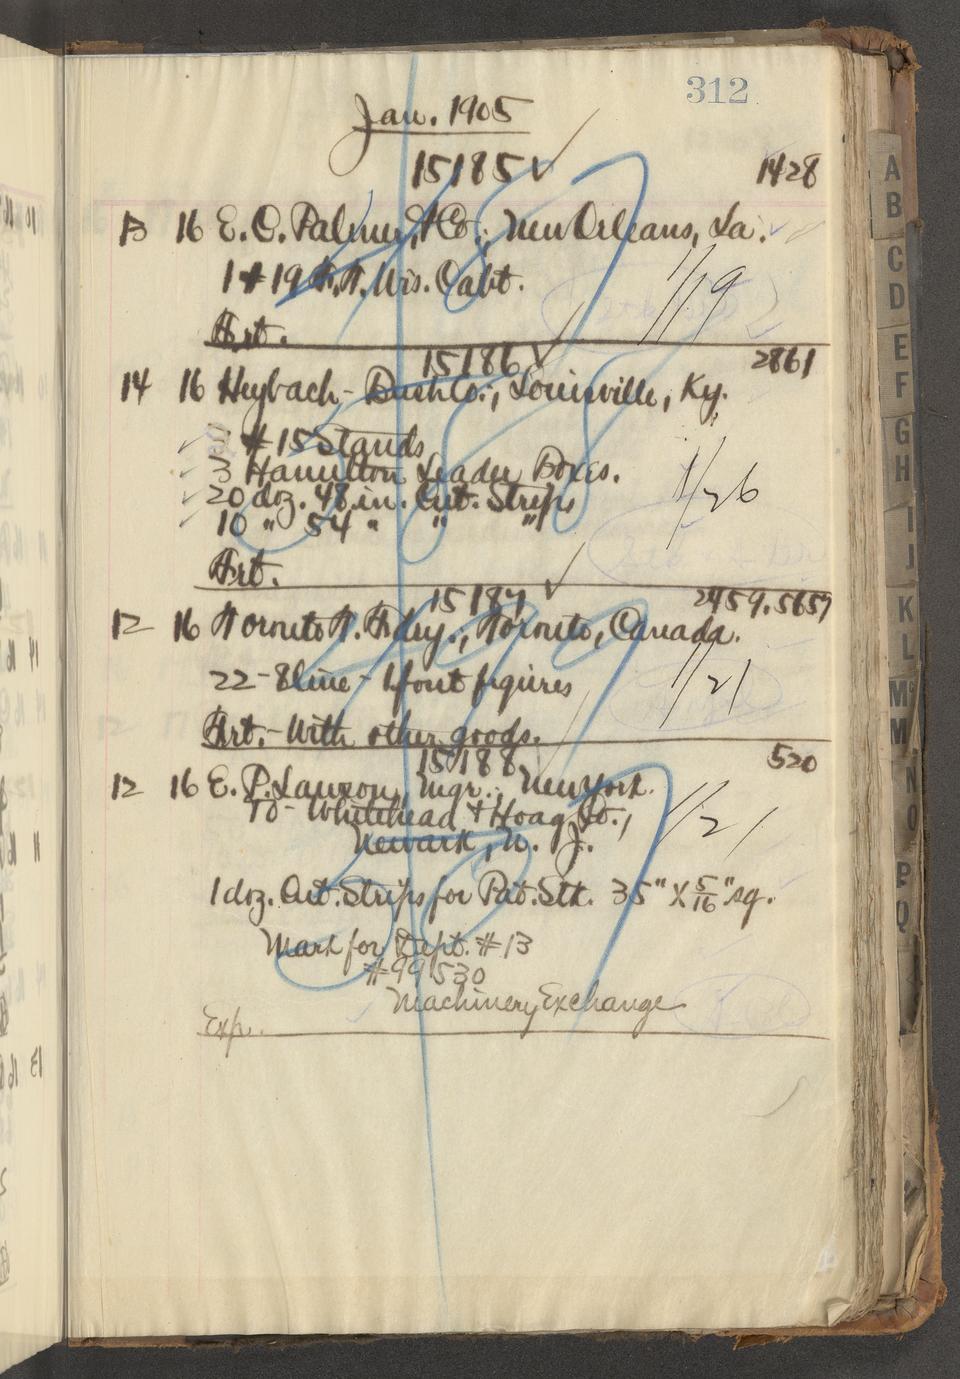 312
Jan. 1905
15185 ✓ 1428
13 16 E. C. Palmer, & Co., New Orleans, La.
1 # 19 F. W. Wis. Cabt.
1/19
Frt.
15186 ✓ 2861
14 16 Heybach-Bush Co., Louisville, Ky.
#15 Stands
3 Hamilton Leader Boxes.
20 doz. 48 in. Cut. Strips
1/26
10 " 54 " " "
Frt.
15187 ✓ 2459.5657
12 16 Toronto T. Fdry., Toronto, Canada.
22-8line-1font figures
1/21
Frt.-With other goods.
15188 520
12 16 E. P. Lawson, Mgr., New York.
To- Whitehead & Hoag Co.,
1/21
Newark, N. J.
1 doz. Cut. Strips for Pat. Stk. 35" X 5/16" sq.
Mark for Dept. #13
#99530
Machinery Exchange
Exp.
A
B
C
D
E
F
G
H
I
J
K
L
M
M
N
O
P
Q